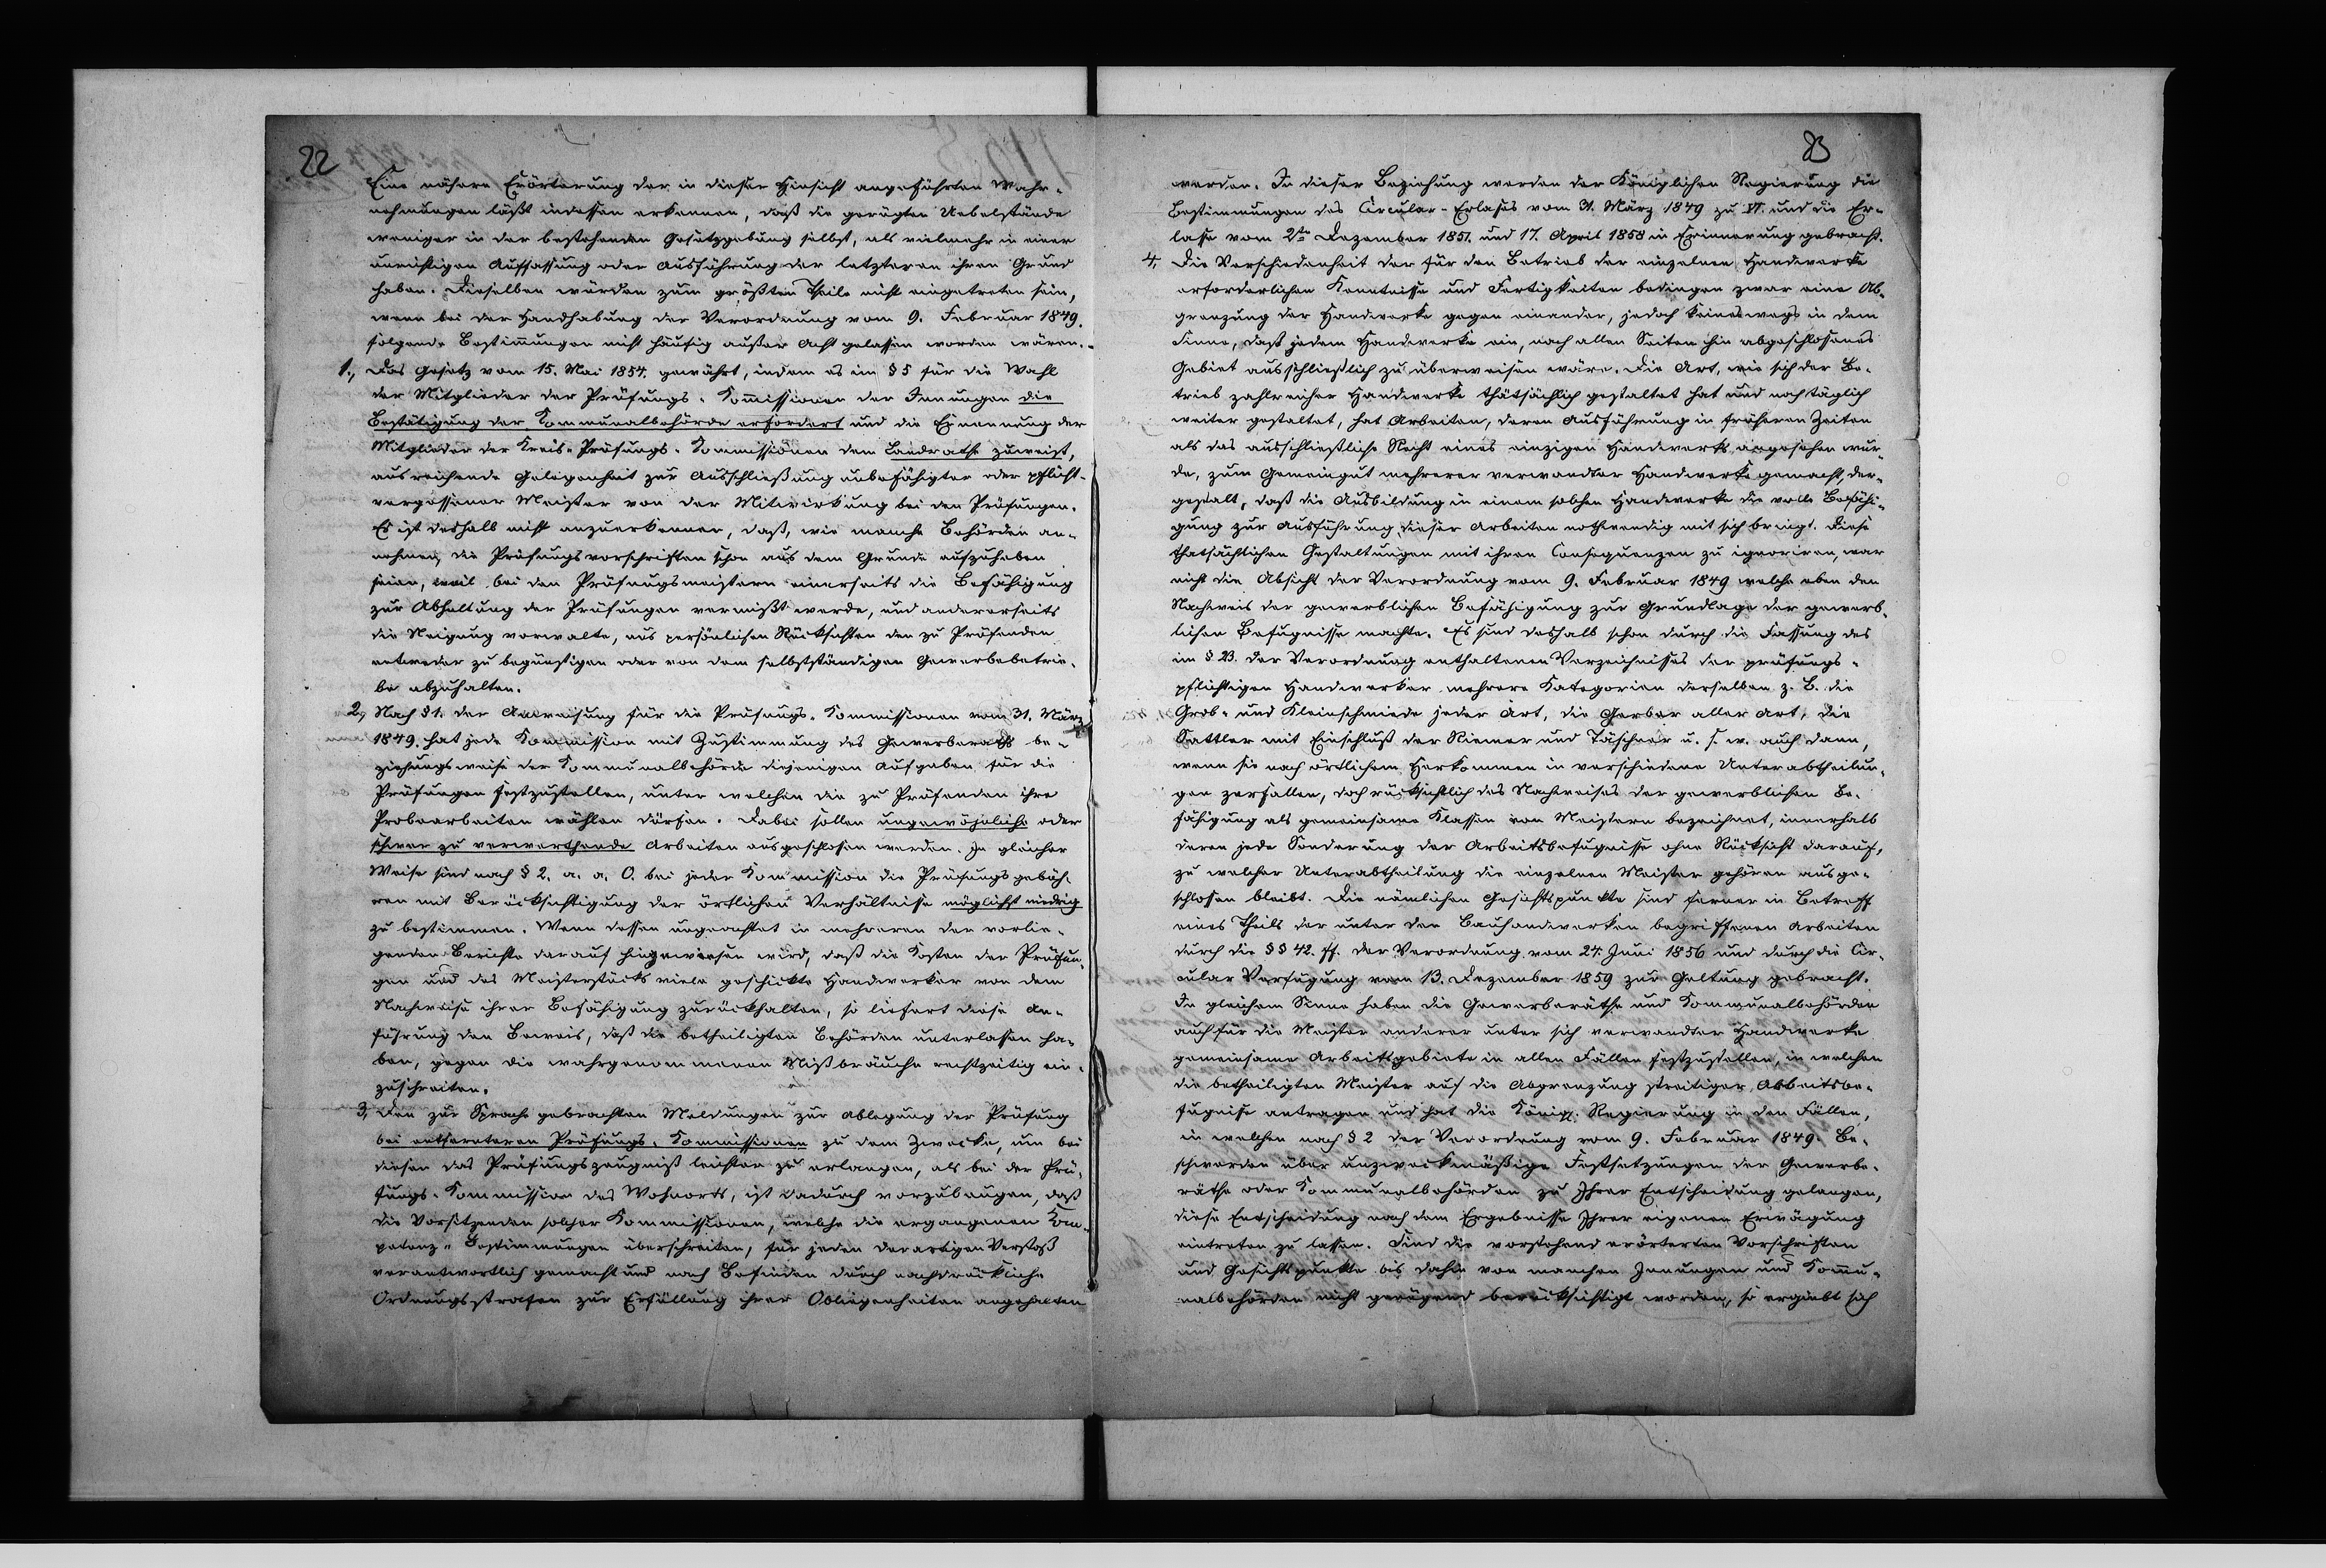 22
Eine nähere Erörterung der in dieser Hinsicht angeführten Wahr-
nehmungen läßt indessen erkennen, daß die gerügten Uebelstände
weniger in der bestehenden Gesetzgebung selbst, als vielmehr in einer
unrichtigen Auffassung oder Ausführung der letzteren ihren Grund
haben. Dieselben würden zum größten Theile nicht eingetreten sein,
wenn bei der Handhabung der Verordnung vom 9. Februar 1849.
folgende Bestimmungen nicht häufig außer Acht gelassen worden wären.
1., Das Gesetz vom 15. Mai 1854. gewährt, indem es im § 5 für die Wahl
der Mitglieder der Prüfungs-Kommissionen der Innungen die
Bestätigung der Kommunalbehörde erfordert und die Ernennung der
Mitglieder der Kreis-Prüfungs-Kommissionen dem Landrathe zuweist,
ausreichende Gelegenheit zur Ausschließung unbefähigter oder pflicht-
vergessener Meister von der Mitwirkung bei den Prüfungen.
Es ist deshalb nicht anzuerkennen, daß, wie manche Behörden an-
nehmen, die Prüfungsvorschriften schon aus dem Grunde aufzuheben
seien, weil bei den Prüfungsmeistern einerseits die Befähigung
zur Abhaltung der Prüfungen vermißt werde, und andererseits
die Neigung vorwalte, aus persönlichen Rücksichten den zu Prüfenden
entweder zu begünstigen oder von dem selbstständigen Gewerbebetrie-
be abzuhalten.
2., Nach § 1. der Anweisung für die Prüfungs-Kommissionen vom 31. März
1849. hat jede Kommission mit Zustimmung des Gewerberaths be-
ziehungsweise der Kommunalbehörde diejenigen Aufgaben für die
Prüfungen festzustellen, unter welchen die zu Prüfenden ihre
Probearbeiten wählen dürfen. Dabei sollen ungewöhnliche oder
schwer zu verwerthende Arbeiten ausgeschlossen werden. In gleicher
Weise sind nach § 2. a. a. O. bei jeder Kommission die Prüfungsgebüh-
ren mit Berücksichtigung der örtlichen Verhältnisse möglichst niedrig
zu bestimmen. Wenn dessen ungeachtet in mehreren der vorlie-
genden Berichte darauf hingewiesen wird, daß die Kosten der Prüfun-
gen und des Meisterstücks viele geschickte Handwerker von dem
Nachweise ihrer Befähigung zurückhalten, so liefert diese An-
führung den Beweis, daß die betheiligten Behörden unterlassen ha-
ben, gegen die wahrgenommenen Mißbräuche rechtzeitig ein-
zuschreiten.
3., Den zur Sprache gebrachten Meldungen zur Ablegung der Prüfung
bei entfernteren Prüfungs-Kommissionen zu dem Zwecke, um bei
diesen das Prüfungszeugniß leichter zu erlangen, als bei der Prü-
fungs-Kommission des Wohnorts, ist dadurch vorzubeugen, daß
die Vorsitzenden solcher Kommissionen, welche die ergangenen Kom-
petenz-Bestimmungen überschreiten, für jeden derartigen Verstoß
verantwortlich gemacht und nach Befinden durch nachdrückliche
Ordnungsstrafen zur Erfüllung ihrer Obliegenheiten angehalten
23
werden. In dieser Beziehung werden der Königlichen Regierung die
Bestimmungen des Circular-Erlasses vom 31. März 1849 zu VI. und die Er-
lasse vom 2ten Dezember 1851. und 17. April 1858 in Erinnerung gebracht.
4., Die Verschiedenheit der für den Betrieb der einzelnen Handwerke
erforderlichen Kenntnisse und Fertigkeiten bedingen zwar eine Ab-
grenzung der Handwerke gegen einander, jedoch keineswegs in dem
Sinne, daß jedem Handwerke ein, nach allen Seiten hin abgeschlossenes
Gebiet ausschließlich zu überweisen wäre. Die Art, wie sich der Be-
trieb zahlreicher Handwerke thätsächlich gestaltet hat und noch täglich
weiter gestaltet, hat Arbeiten, deren Ausführung in früheren Zeiten
als das ausschließliche Recht eines einzigen Handwerks angesehen wur-
de, zum Gemeingut mehrerer verwandter Handwerke gemacht, der-
gestalt, daß die Ausbildung in einem solchen Handwerke die volle Befähi-
gung zur Ausführung dieser Arbeiten nothwendig mit sich bringt. Diese
thatsächlichen Gestaltungen mit ihren Consequenzen zu ignoriren, war
nicht die Absicht der Verordnung vom 9. Februar 1849 welche eben den
Nachweis der gewerblichen Befähigung zur Grundlage der gewerb-
lichen Befugnisse machte. Es sind deshalb schon durch die Fassung des
im § 23. der Verordnung enthaltenen Verzeichnisses der prüfungs-
pflichtigen Handwerker mehrere Kategorien derselben z. B. die
Grob- und Kleinschmiede jeder Art, die Gerber aller Art, die
Sattler mit Einschluß der Riemer und Täschner u. s. w. auch dann,
wenn sie nach örtlichem Herkommen in verschiedene Unterabtheilun-
gen zerfallen, doch rücksichtlich des Nachweises der gewerblichen Be-
fähigung als gemeinsame Klassen von Meistern bezeichnet, innerhalb
deren jede Sonderung der Arbeitsbefugnisse ohne Rücksicht darauf,
zu welcher Unterabtheilung die einzelnen Meister gehören ausge-
schlossen bleibt. Die nämlichen Gesichtspunkte sind ferner in Betreff
eines Theils der unter den Bauhandwerken begriffenen Arbeiten
durch die §§ 42. ff. der Verordnung vom 24. Juni 1856 und durch die Cir-
cular Verfügung vom 13. Dezember 1859 zur Geltung gebracht.
In gleichem Sinne haben die Gewerberäthe und Kommunalbehörden
auch für die Meister anderer unter sich verwandter Handwerke
gemeinsame Arbeitsgebiete in allen Fällen festzustellen, in welchen
die betheiligten Meister auf die Abgrenzung streitiger Arbeitsbe-
fugnisse antragen und hat die Königl. Regierung in den Fällen,
in welchen nach § 2 der Verordnung vom 9. Februar 1849. Be-
schwerden über unzweckmäßige Festsetzungen der Gewerbe-
räthe oder Kommunalbehörden zu Ihrer Entscheidung gelangen,
diese Entscheidung nach dem Ergebnisse Ihrer eigenen Erwägung
eintreten zu lassen. Sind die vorstehend erörterten Vorschriften
und Gesichtspunkte bis dahin von manchen Innungen und Kommu-
nalbehörden nicht genügend berücksichtigt worden, so ergiebt sich